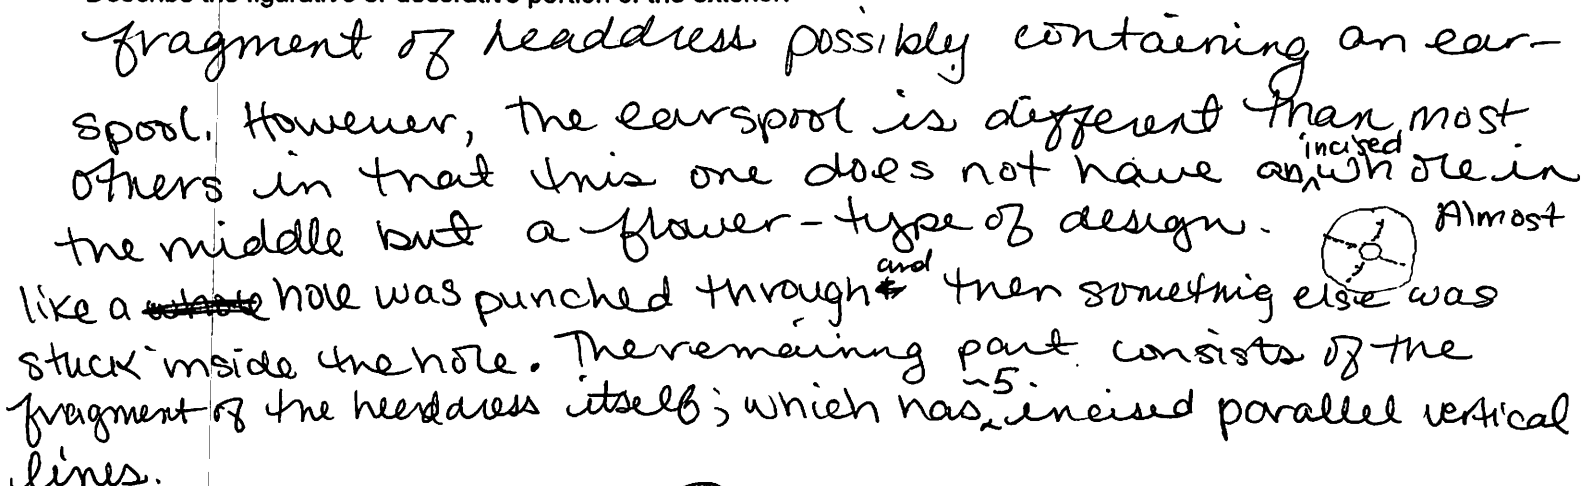 Describe the figurative or decorative portion of the exterior.
fragment of headdress possibly containing an ear-
spool. However, the earspool is different than most
others in that this one does not have an incised whole in
the middle but a flower-type of design. Almost
like a hole was punched through and then somethig else was
stuck inside the hole. The remaining part consists of the
fragment of the headdress itself; which has ~5 incised parallel vertical
lines.